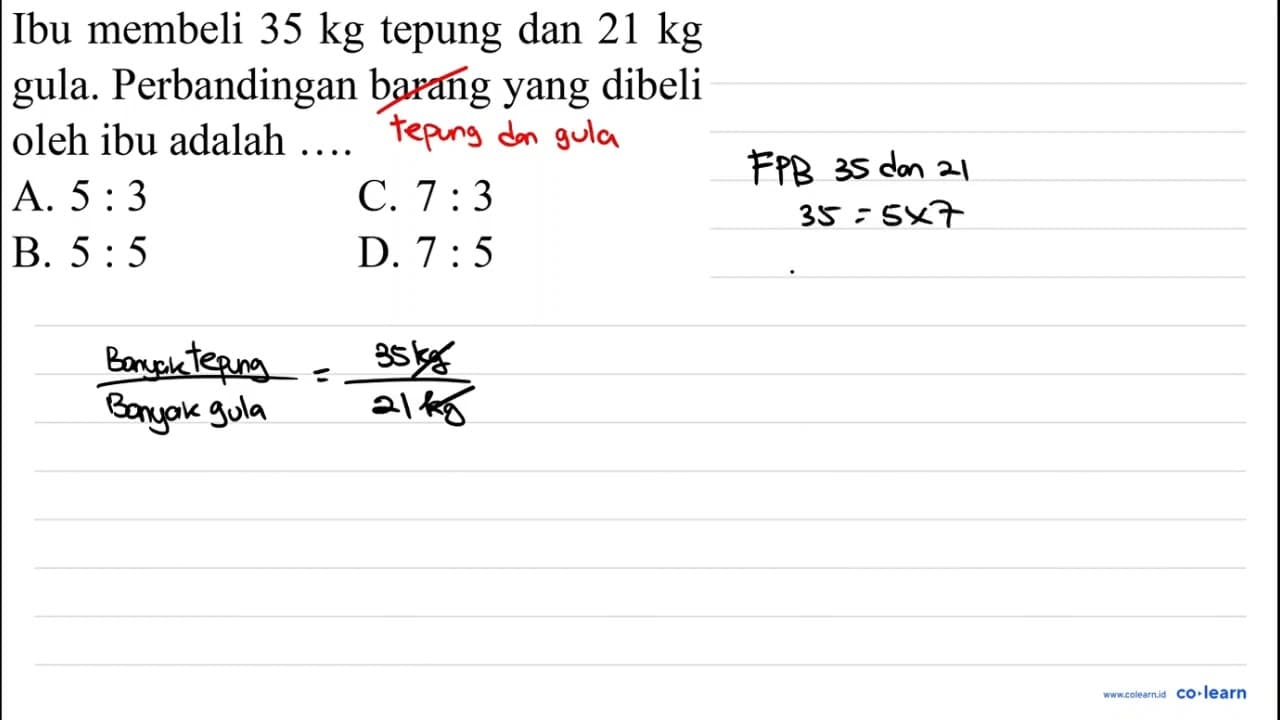 Ibu membeli 35 kg tepung dan 21 kg
gula. Perbandingan barang yang dibeli
oleh ibu adalah ....
tepung dan gula
A. 5 : 3
C. 7 : 3
B. 5 : 5
D. 7 : 5
FPB 35 dan 21
35 = 5x7
Banyak tepung
Banyak gula
=
35 kg
21 kg
www.colearn.id co·learn